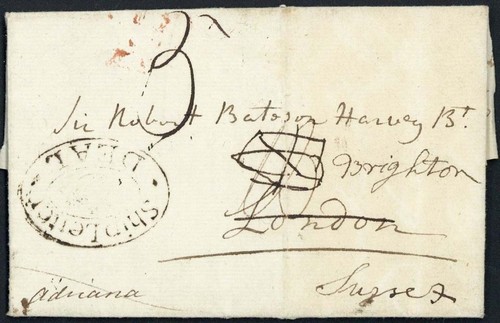 3
Sir Robert Bateson Harvey Bt.
DEAL
Ship Letter
Brighton
London
Sussex
Adriana